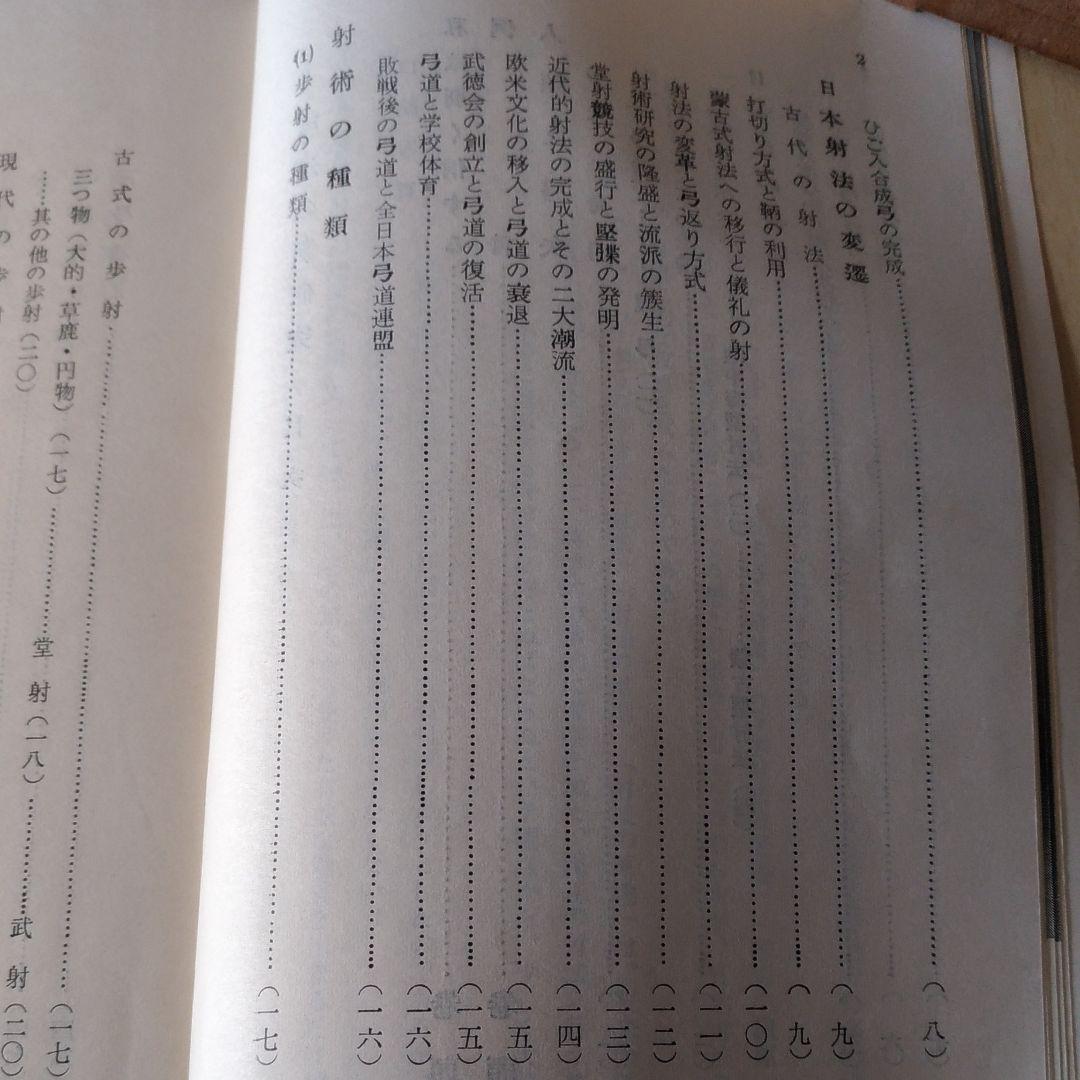 ひご入合成弓の完成……(八)
2 日本射法の変遷
古代の射法……(九)
打切り方式と鞆の利用……(九)
蒙古式射法への移行と儀礼の射……(一〇)
射法の変革と弓返り方式……(一一)
射術研究の隆盛と流派の簇生……(一二)
堂射競技の盛行と堅䪝の発明……(一三)
近代的射法の完成とその二大潮流……(一四)
欧米文化の移入と弓道の衰退……(一五)
武徳会の創立と弓道の復活……(一五)
弓道と学校体育……(一六)
敗戦後の弓道と全日本弓道連盟……(一六)
射術の種類
(1)歩射の種類……(一七)
古式の歩射……(一七)
三つ物(大的・草鹿・円物)(一七)……堂射(一八)……武射(二〇)
……其の他の歩射(二〇)
現代の歩